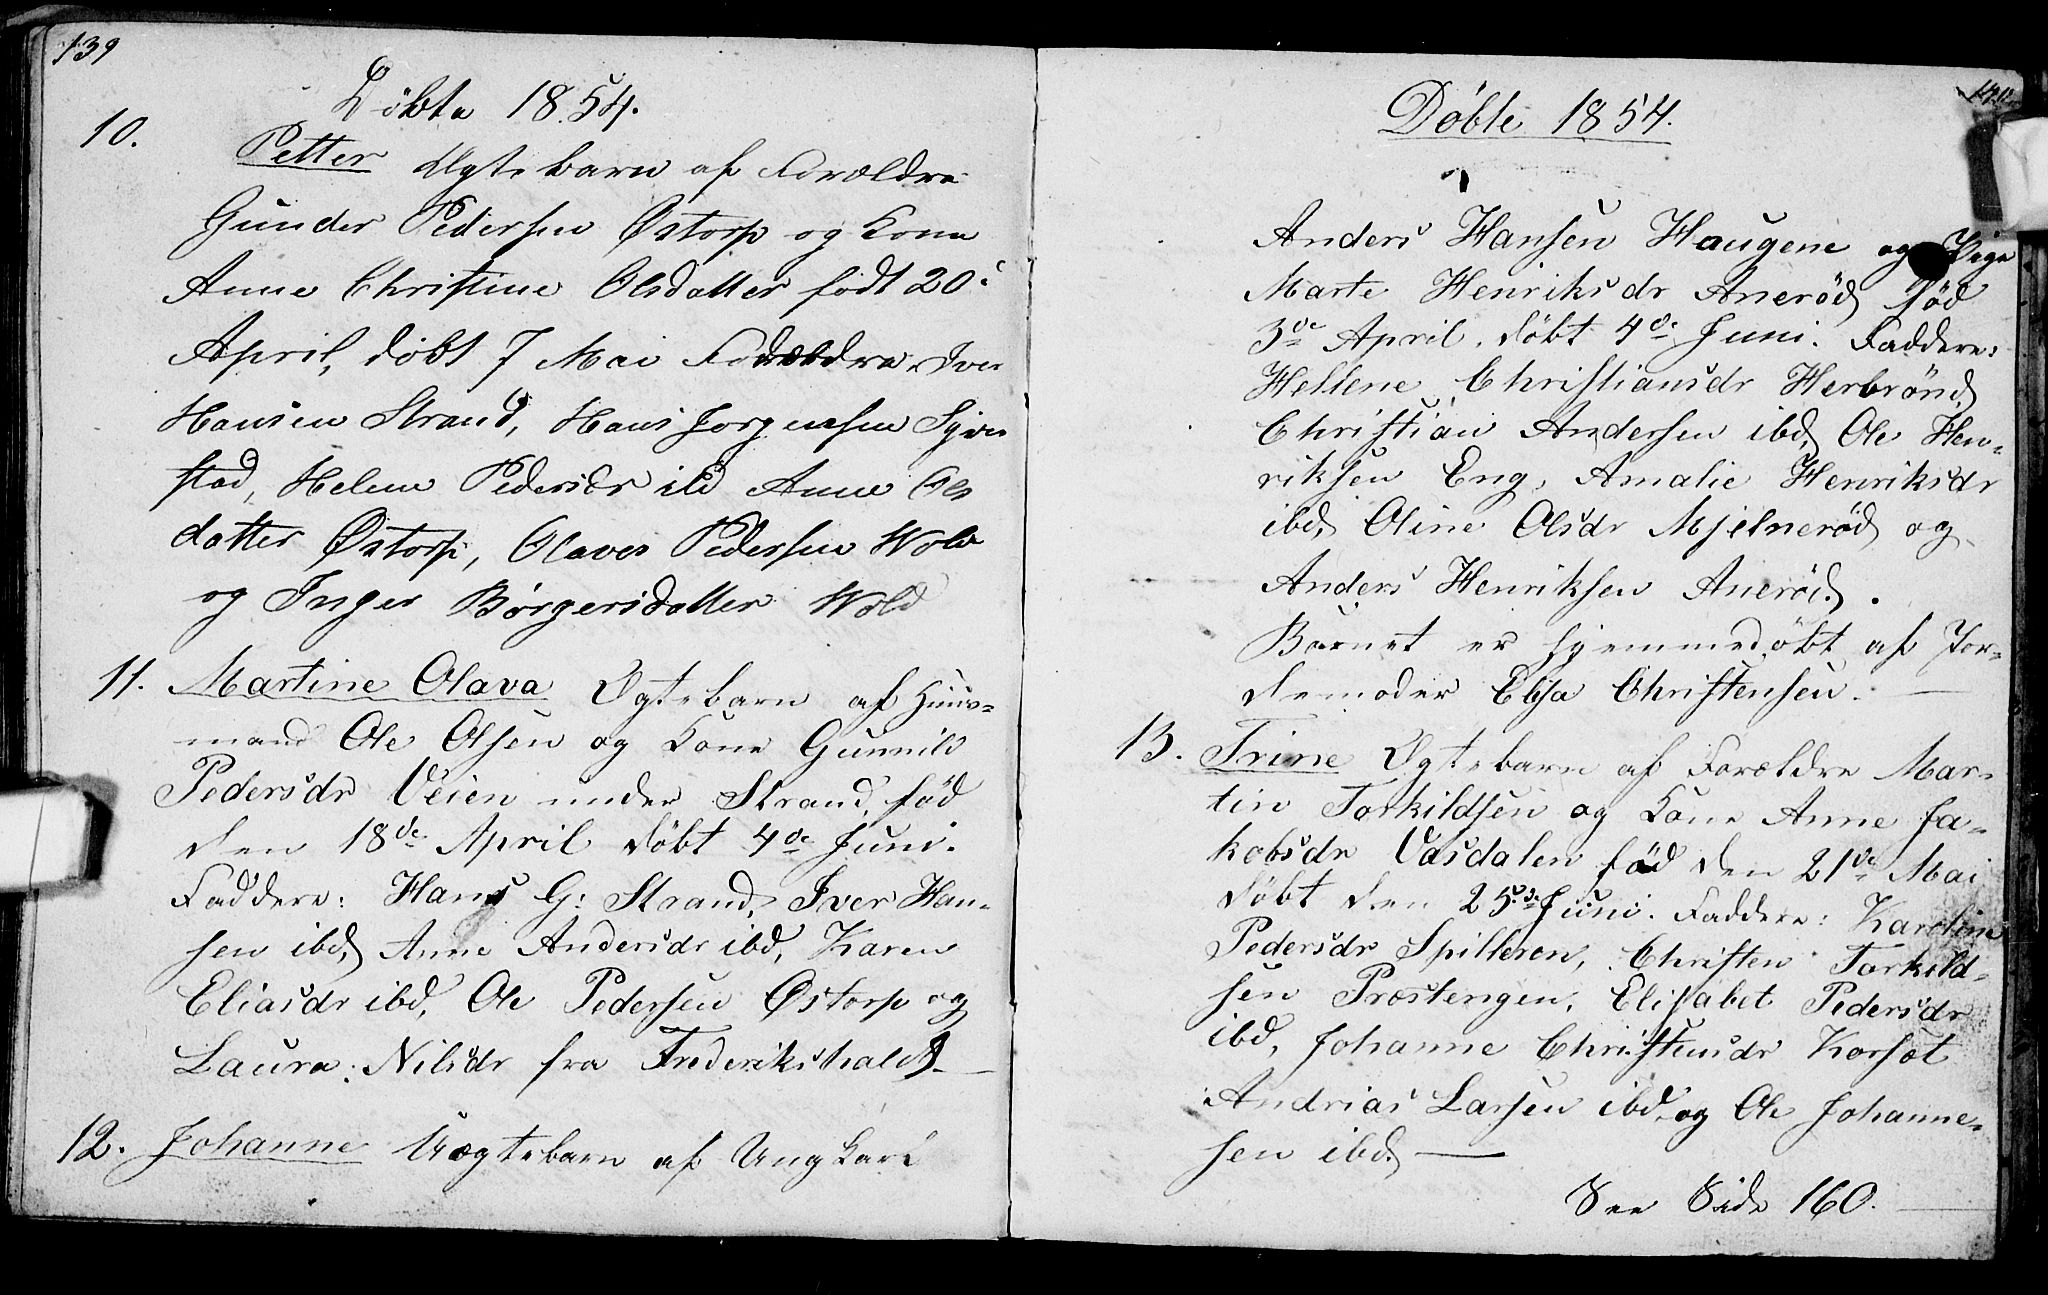 139
Døbte 1854.
10.
Petter Ægte barn af Forældre
Gunder Pedersen Østorp og Kone
Anne Christine Olsdatter født 20 i
April, døbt 7 Mai Forældre. Iver
Hansen Strand, Hans Jorgensen Sjøv
stad, Helene Pedersdr ibd Anne Ols
datter Østorp, Olaves Pedersen Wold
og Inger Børgersdatter Wold
11. Martine Olava Ægtebarn af Huus=
mand Ole Olsen og Kone Gunnild
Pedersdr Veien under Strand, fød
den 18de April døbt 4de Juni.
Faddere: Hans G: Strand, Iver Han=
sen ibd, Anne Andersdr ibd, Karen
Eliasdr ibd, Ole Pedersen Østorp og
Laura Nilsdr fra Frederikshald. —
12. Johanne Uægtebarn af Ungkarl
140
Døbte 1854.
Anders Hansen Haugene og Pige
Marte Henriksdr Anerød fød
3de April, døbt 4de Juni. Faddere:
Hellene Christiansdr Herbrønd,
Christian Andersen ibd, Ole Hen=
riksen Eng, Amalie Henriksdr
ibd, Oline Olsdr Mjelnerød og
Anders Henriksen Anerød.
Barnet er hjemmedøbt af Jor=
demoder Elisa Christensen. —
13. Trine Ægtebarn af Forældre Mar=
tin Torkildsen og Kone Anne Ja=
kobsdr Vasdalen fød den 21de Mai
døbt den 25de Juni. Faddere: Karoline
Pedersdr Spilleren, Christen Torkild=
sen Præstengen, Elisabet Pedersdr
ibd, Johanne Christensdr Korsæt
Andrias Larsen ibd, og Ole Johanne=
sen ibd. —
See Side 160. —